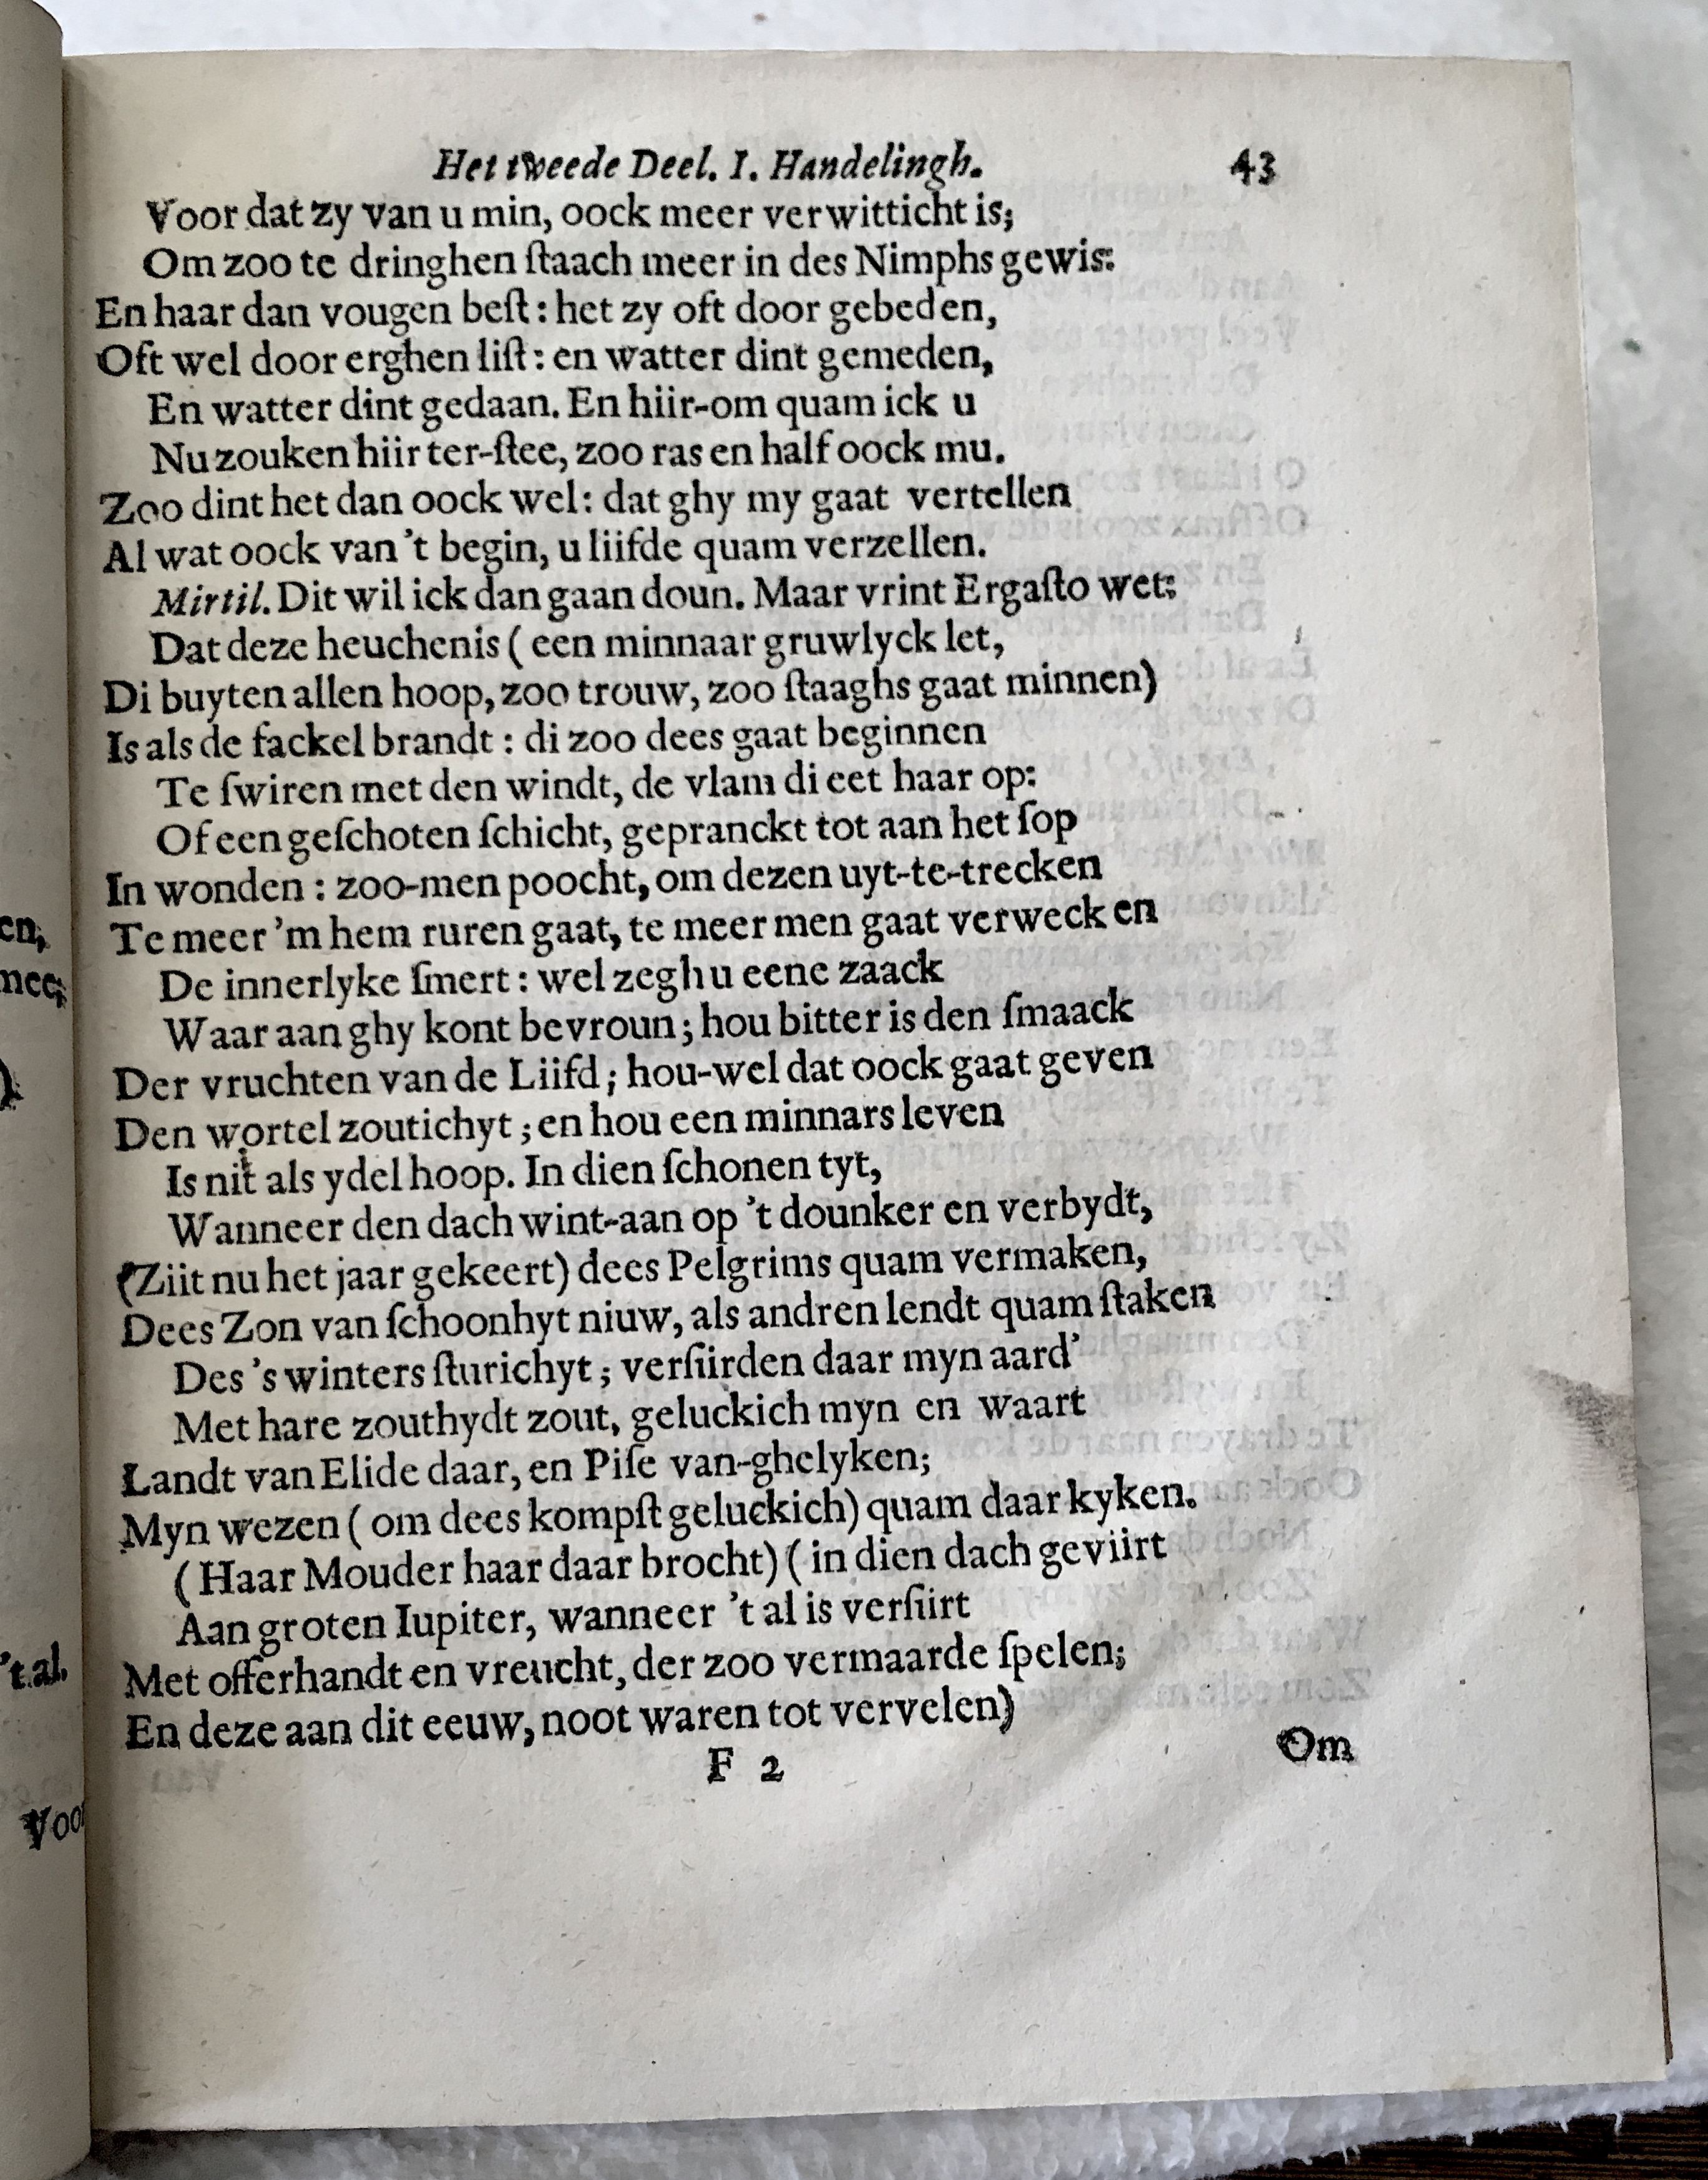 Het tweede Deel. I. Handelingh. 43
Voor dat zy van u min, oock meer verwitticht is;
Om zoo te dringhen ſtaach meer in des Nimphs gewis:
En haar dan vougen beſt: het zy oft door gebeden,
Oft wel door erghen liſt: en watter dint gemeden,
En watter dint gedaan. En hiir-om quam ick u
Nu zouken hiir ter-ſtee, zoo ras en half oock mu.
Zoo dint het dan oock wel: dat ghy my gaat vertellen
Al wat oock van 't begin, u liifde quam verzellen.
Mirtil. Dit wil ick dan gaan doun. Maar vrint Ergaſto wet:
Dat deze heuchenis ( een minnaar gruwlyck let,
Di buyten allen hoop, zoo trouw, zoo ſtaaghs gaat minnen)
Is als de fackel brandt : di zoo dees gaat beginnen
Te ſwiren met den windt, de vlam di eet haar op:
Of een geſchoten ſchicht, gepranckt tot aan het ſop
In wonden : zoo-men poocht, om dezen uyt-te-trecken
Te meer 'm hem ruren gaat, te meer men gaat verwecken
De innerlyke ſmert : wel zegh u eene zaack
Waar aan ghy kont bevroun; hou bitter is den ſmaack
Der vruchten van de Liifd; hou-wel dat oock gaat geven
Den wortel zoutichyt; en hou een minnars leven
Is nit als ydel hoop. In dien ſchonen tyt,
Wanneer den dach wint-aan op 't dounker en verbydt,
(Ziit nu het jaar gekeert) dees Pelgrims quam vermaken,
Dees Zon van ſchoonhyt niuw, als andren lendt quam ſtaken
Des 's winters ſturichyt; verſiirden daar myn aard'
Met hare zouthydt zout, geluckich myn en waart
Landt van Elide daar, en Piſe van-ghelyken;
Myn wezen ( om dees kompſt geluckich) quam daar kyken.
( Haar Mouder haar daar brocht) ( in dien dach geviirt
Aan groten Iupiter, wanneer 't al is verſiirt
Met offerhandt en vreucht, der zoo vermaarde ſpelen;
En deze aan dit eeuw, noot waren tot vervelen)
F 2 Om
en,
mee;
)
't al.
Voor